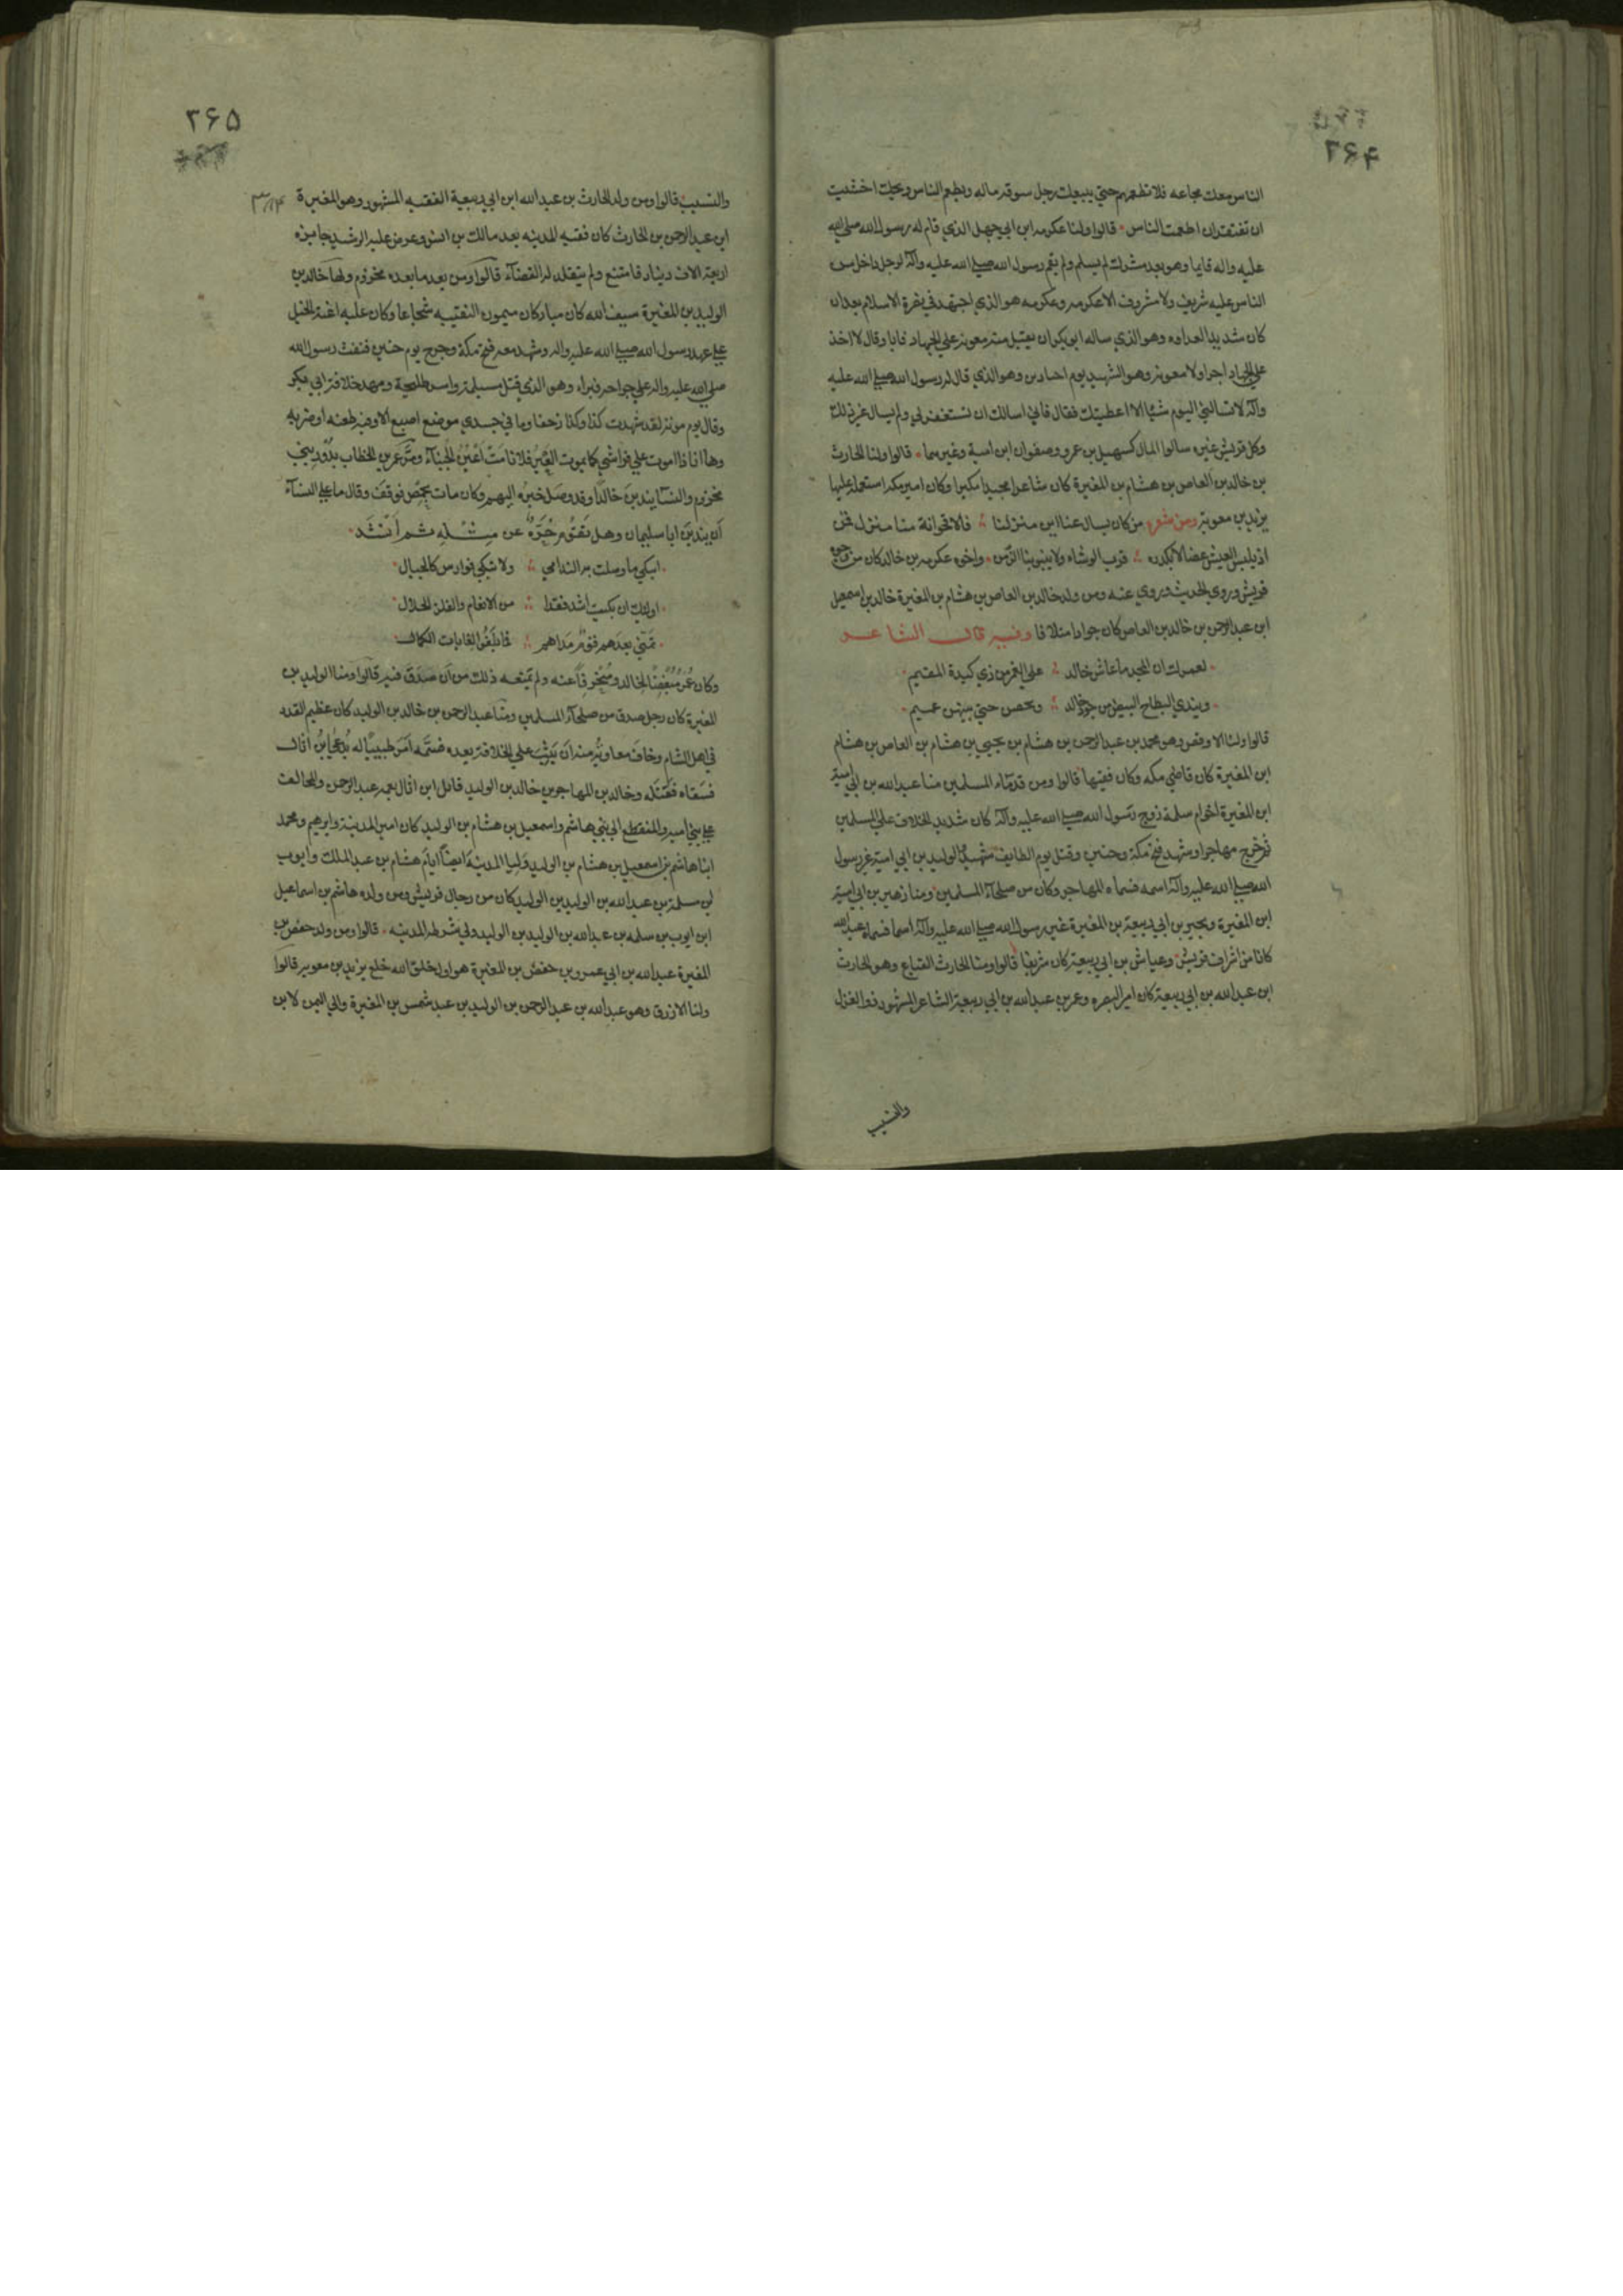 ۲۶۴
الناس معك مجاعه فلا تطعمهم حتي يبيعك رجل سوقه ماله ويطعم الناس ويحك اخشيت
ان تفتقدان اطعمت الناس قالوا ولنا عكرمه ابن ابي جهل الذي قام له رسول الله صلي الله
عليه واله قايما وهو بعد مشرك لم يسلم ولم يقم رسول الله صلي الله عليه وآله لرجل داخل من
الناس عليه شريف ولا مشروف الا عكرمه وعكرمه هو الذي اجتهد في نصرة الاسلام بعد ان
كان شديد العداوه وهو الذي ساله ابو بكر ان يقبل منه معونه علي الجهاد فابا وقال لا اخذ
علي الجهاد اجرا ولا معونه وهو الشهيد يوم اجنادين وهو الذي قال له رسول الله صلي الله عليه
وآله لا تسالني اليوم شيئا الا اعطيتك فقال فاني اسالك ان تستغفر لي ولم يسال غير ذلك
وكل قريش غيره سالوا المال كسهيل بن عمرو وصفوان ابن امية وغيرهما قالوا ولنا الحارث
بن خالد بن العاص بن هشام بن المغيرة كان شاعرا مجيدا مكثرا وكان امير مكه استعمله عليها
يزيد بن معويه ومن شعره من كان يسال عنا اين منزلنا فالاقحوانة منا منزل قمن
اذ يلبس العيش غضا لا يكدره قرب الوشاه ولا ينبو بنا الزمن واخوه عكرمه بن خالد كان من
قريش وروي الحديث وروي عنه ومن ولد خالد بن العاص بن هشام بن المغيرة خالد بن اسمعيل
ابن عبد الرحمن بن خالد بن العاص كان جوادا متلافا وفيه قال الشاعر
لعمرك ان المجد ما عاش خالد علي الغمر من ذي كيدة المقيم
ويندي البطاح البيض من جود خالد ويخصبن حتي نبتهن عميم
قالوا ولنا الاوقص وهو محمد بن عبد الرحمن بن هشام بن يحيي بن هشام بن العاص بن هشام
ابن المغيرة كان قاضي مكه وكان فقيها قالوا ومن قدماء المسلمين منا عبد الله بن ابي امية
ابن المغيرة اخو ام سلمة زوج رسول الله صلي الله عليه وآله كان شديد الخلاف علي المسلمين
ثم خرج مهاجرا وشهد فتح مكة وحنين وقتل يوم الطايف شهيدا والوليد بن ابي امية غير رسول
الله صلي الله عليه وآله اسمه فسماه المهاجر وكان من صلحاء المسلمين ومنا زهير بن ابي امية
ابن المغيرة وبجير بن ابي ربيعة بن المغيرة غير رسول الله صلي الله عليه وآله اسما فسماه عبد الله
كانا من اشراف قريش وعياش بن ابي ربيعة كان شريفا قالوا ومنا الحارث القباع وهو الحارث
ابن عبد الله بن ابي ربيعة كان امير البصره وعمر بن عبد الله بن ابي ربيعة الشاعر المشهور ذو الغزل
والنسيب
۲۶۵
والنسيب قالوا ومن ولد الحارث بن عبد الله ابن ابي ربيعة الفقيه المشهور وهو المغيرة
ابن عبد الرحمن بن الحارث كان فقيه المدينه بعد مالك بن انس وعرض عليه الرشيد جايزه
اربعة الاف دينار فامتنع ولم يتقلد له القضآء قالوا ومن يعد ما بعده مخزوم ولها خالد بن
الوليد بن المغيرة سيف الله كان مباركا ميمون النقيبه شجاعا وكان عليه اعنة الخيل
علي عهد رسول الله صلي الله عليه واله وشهد معه فتح مكة وجرح يوم حنين فنفث رسول الله
صلي الله عليه واله علي جراحه فبراء وهو الذي قتل مسيلمة واسر طليحة ومهد خلافة ابي بكر
وقال يوم موته لقد شهدت كذا وكذا زحفا وما في جسدي موضع اصبع الا وفيه طعنه او ضربه
وها انا ذا اموت علي فراشي كما يموت العير فلا نامت اعين الجبنآء ومر عمر بن الخطاب بدور بني
مخزوم والنسآ يندبن خالدا وقد وصل خبره اليهم وكان مات بحمص فوقف وقال ما علي النسآء
ان يندبن ابا سليمان وهل تقوم حرة عن مثله ثم انشد
ابكي ما وصلت به الندامي ولا تبكي فوارس كالجبال
اولئك ان بكيت اشد فقدا من الانعام والعكر الحلال
تمني بعدهم قوم مداهم فما بلغوا لغايات الكمال
وكان عمر مبغضا لخالد ومنحرفا عنه ولم يمنعه ذلك من ان صدق فيه قالوا ومنا الوليد بن
المغيرة كان رجل صدق من صلحآء المسلمين ومنا عبد الرحمن بن خالد بن الوليد كان عظيم القدر
في اهل الشام وخاف معاوية منه ان يثب علي الخلافة بعده فسمه امر طبيبا له يدعي ابن اثال
فسقاه فقتله وخالد بن المهاجر بن خالد بن الوليد قاتل ابن اثال بعمه عبد الرحمن والمخالف
علي بني اميه والمنقطع الي بني هاشم واسمعيل بن هشام بن الوليد كان امير المدينة وابرهيم ومحمد
ابنا هاشم بن اسمعيل بن هشام بن الوليد وليا المدينة ايضا ايام هشام بن عبد الملك وايوب
بن سلمة بن عبد الله بن الوليد بن الوليد كان من رجال قريش ومن ولده هاشم بن اسماعيل
ابن ايوب بن سلمه بن عبد الله بن الوليد بن الوليد ولي شرطه المدينه قالوا ومن ولد حفص بن
المغيرة عبد الله بن ابي عمرو بن حفص بن المغيرة هو اول خلق الله خلع يزيد بن معويه قالوا
ولنا الازرق وهو عبد الله بن عبد الرحمن بن الوليد بن عبد شمس بن المغيرة والي اليمن لابن